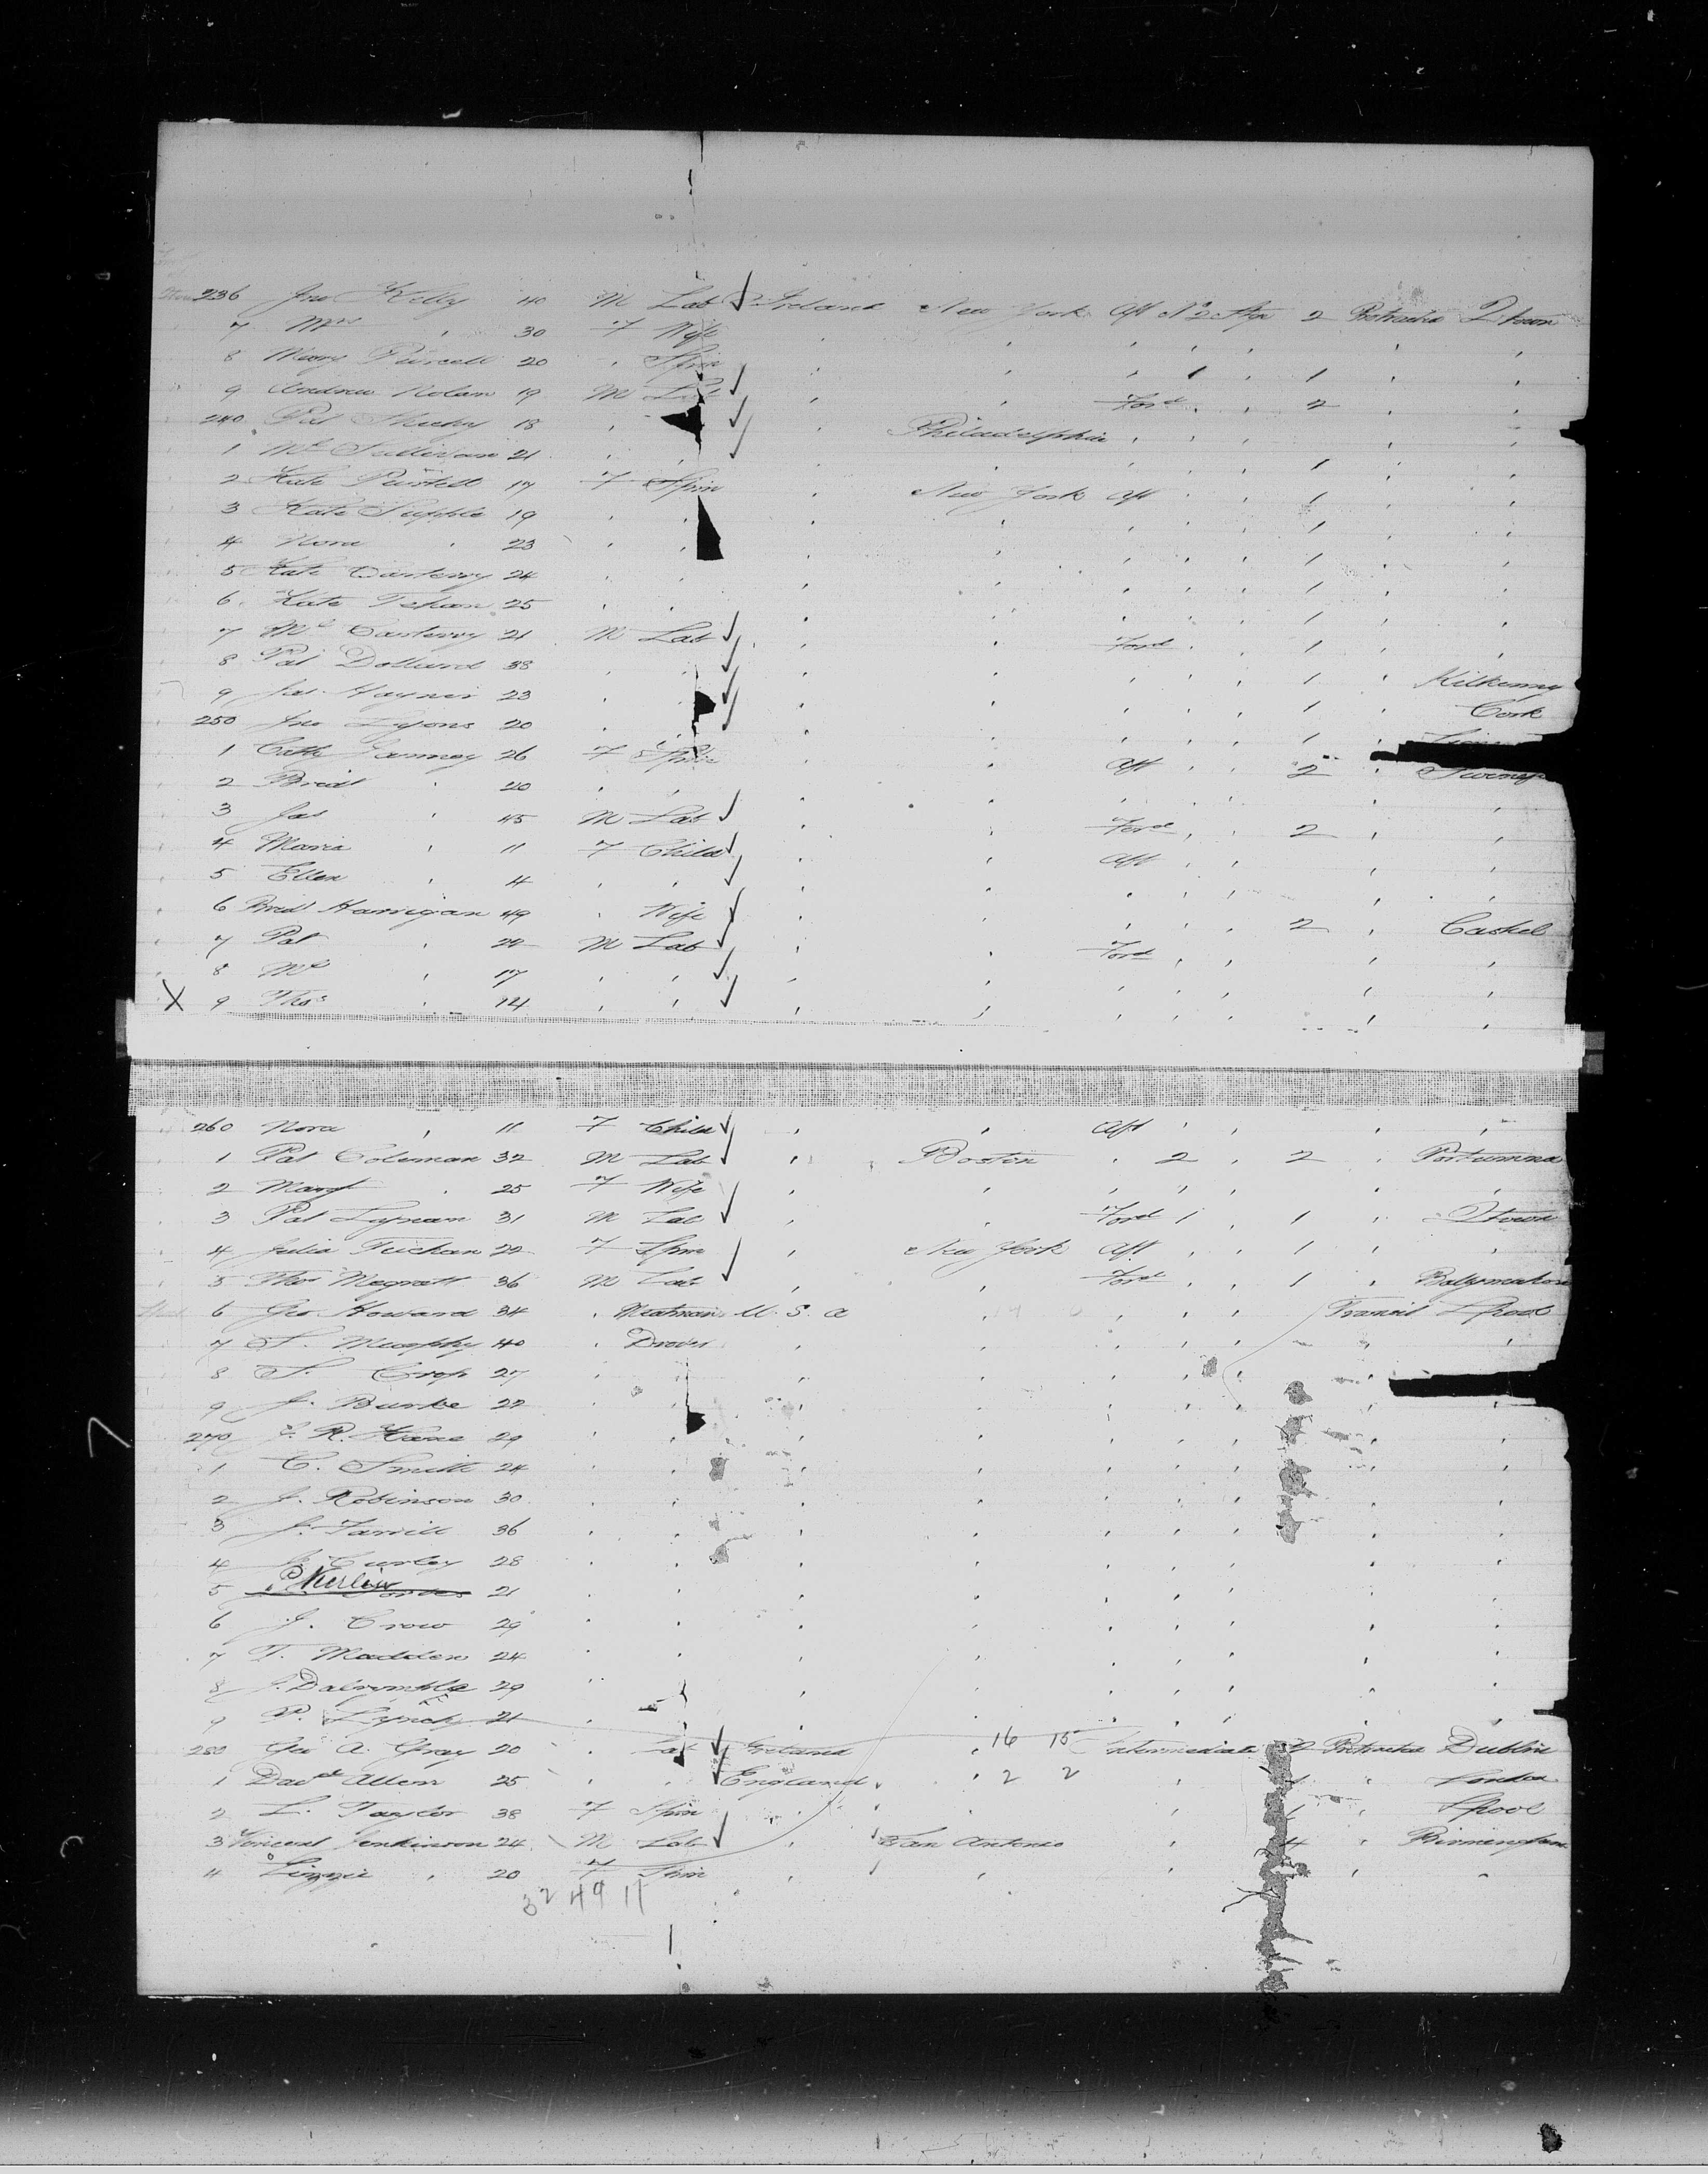 236 Jno Kelly 40 M Lab Ireland New York Aft No 2 Str 2 Protracted Qtown
7 Mrs " 30 F Wife
8 Mary Purcell 20 " Spin 1 1
9 Andrew Nolan 19 M Lab Ford 2
240 Pat Sheehy 18 Philadelphia
1 Ml Sullivan 21 1
2 Kate Purtell 17 F Spin New York Aft 1
3 Kate Supple 19 1
4 Nora " 23 1
5 Kate Casterry 24 1
6 Kate Tehan 25 1
7 Ml Casterry 21 M Lab Ford 1
8 Pat Dollard 38 1 Kilkenny
9 Jas Haynes 23 1 Cork
250 Jno Lyons 20 1
1 Cath 26 F Spin Aft 2
2 Brid " 20
3 Jas " 45 M Lab Ford 2
4 Maria " 11 F Child Aft
5 Ellen " 4
6 Brid Harrigan 49 " Wife 2 Cashel
7 Pat " 22 M Lab Ford
8 Ml " 17
X 9 Thos " 14
260 Nora " 11 F Child Aft
1 Pat Coleman 32 M Lab Boston 2 2 Portumna
2 Margt " 25 F Wife
3 Pat Lynam 31 M Lab Ford 1 1 Qtown
4 Julia 22 F Spin New York Aft 1
5 Thos Megratt 36 M Lab Ford 1 Ballymahon
6 Geo Howard 34 " Neatman U.S.A Transit Lpool
7 S. Murphy 40 " Drover
8 S. Crop 27
9 J. Burke 22
270 J. R. Kane 29
1 C. Smith 24
2 J. Robinson 30
3 J. Farrell 36
4 J. Curley 28
5 P Kerlin 21
6 J. Crow 29
7 T. Madden 24
8 J. Dalrymple 29
9 P. Lynch 21
280 Geo A. Gray 20 " Lab Ireland 16 15 Intermediate 2 Protracted Dublin
1 Davd Allen 25 England 2 2 1 London
2 L. Taylor 38 F Spin 1 Lpool
3 Vincent Jenkinson 24 M Lab San Antonio 4 Birmingham
4 Lizzie " 20 F Spin
32 49 11
1